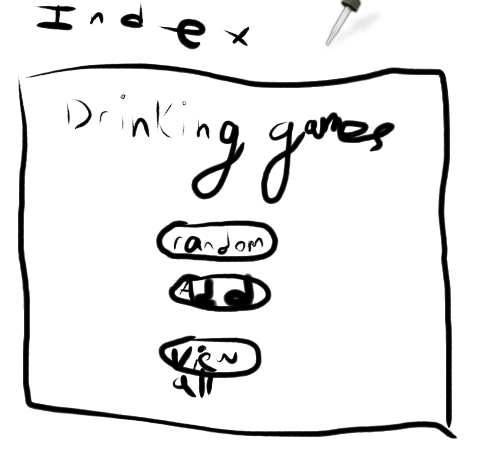 Index
Drinking games
random
Add
View
all